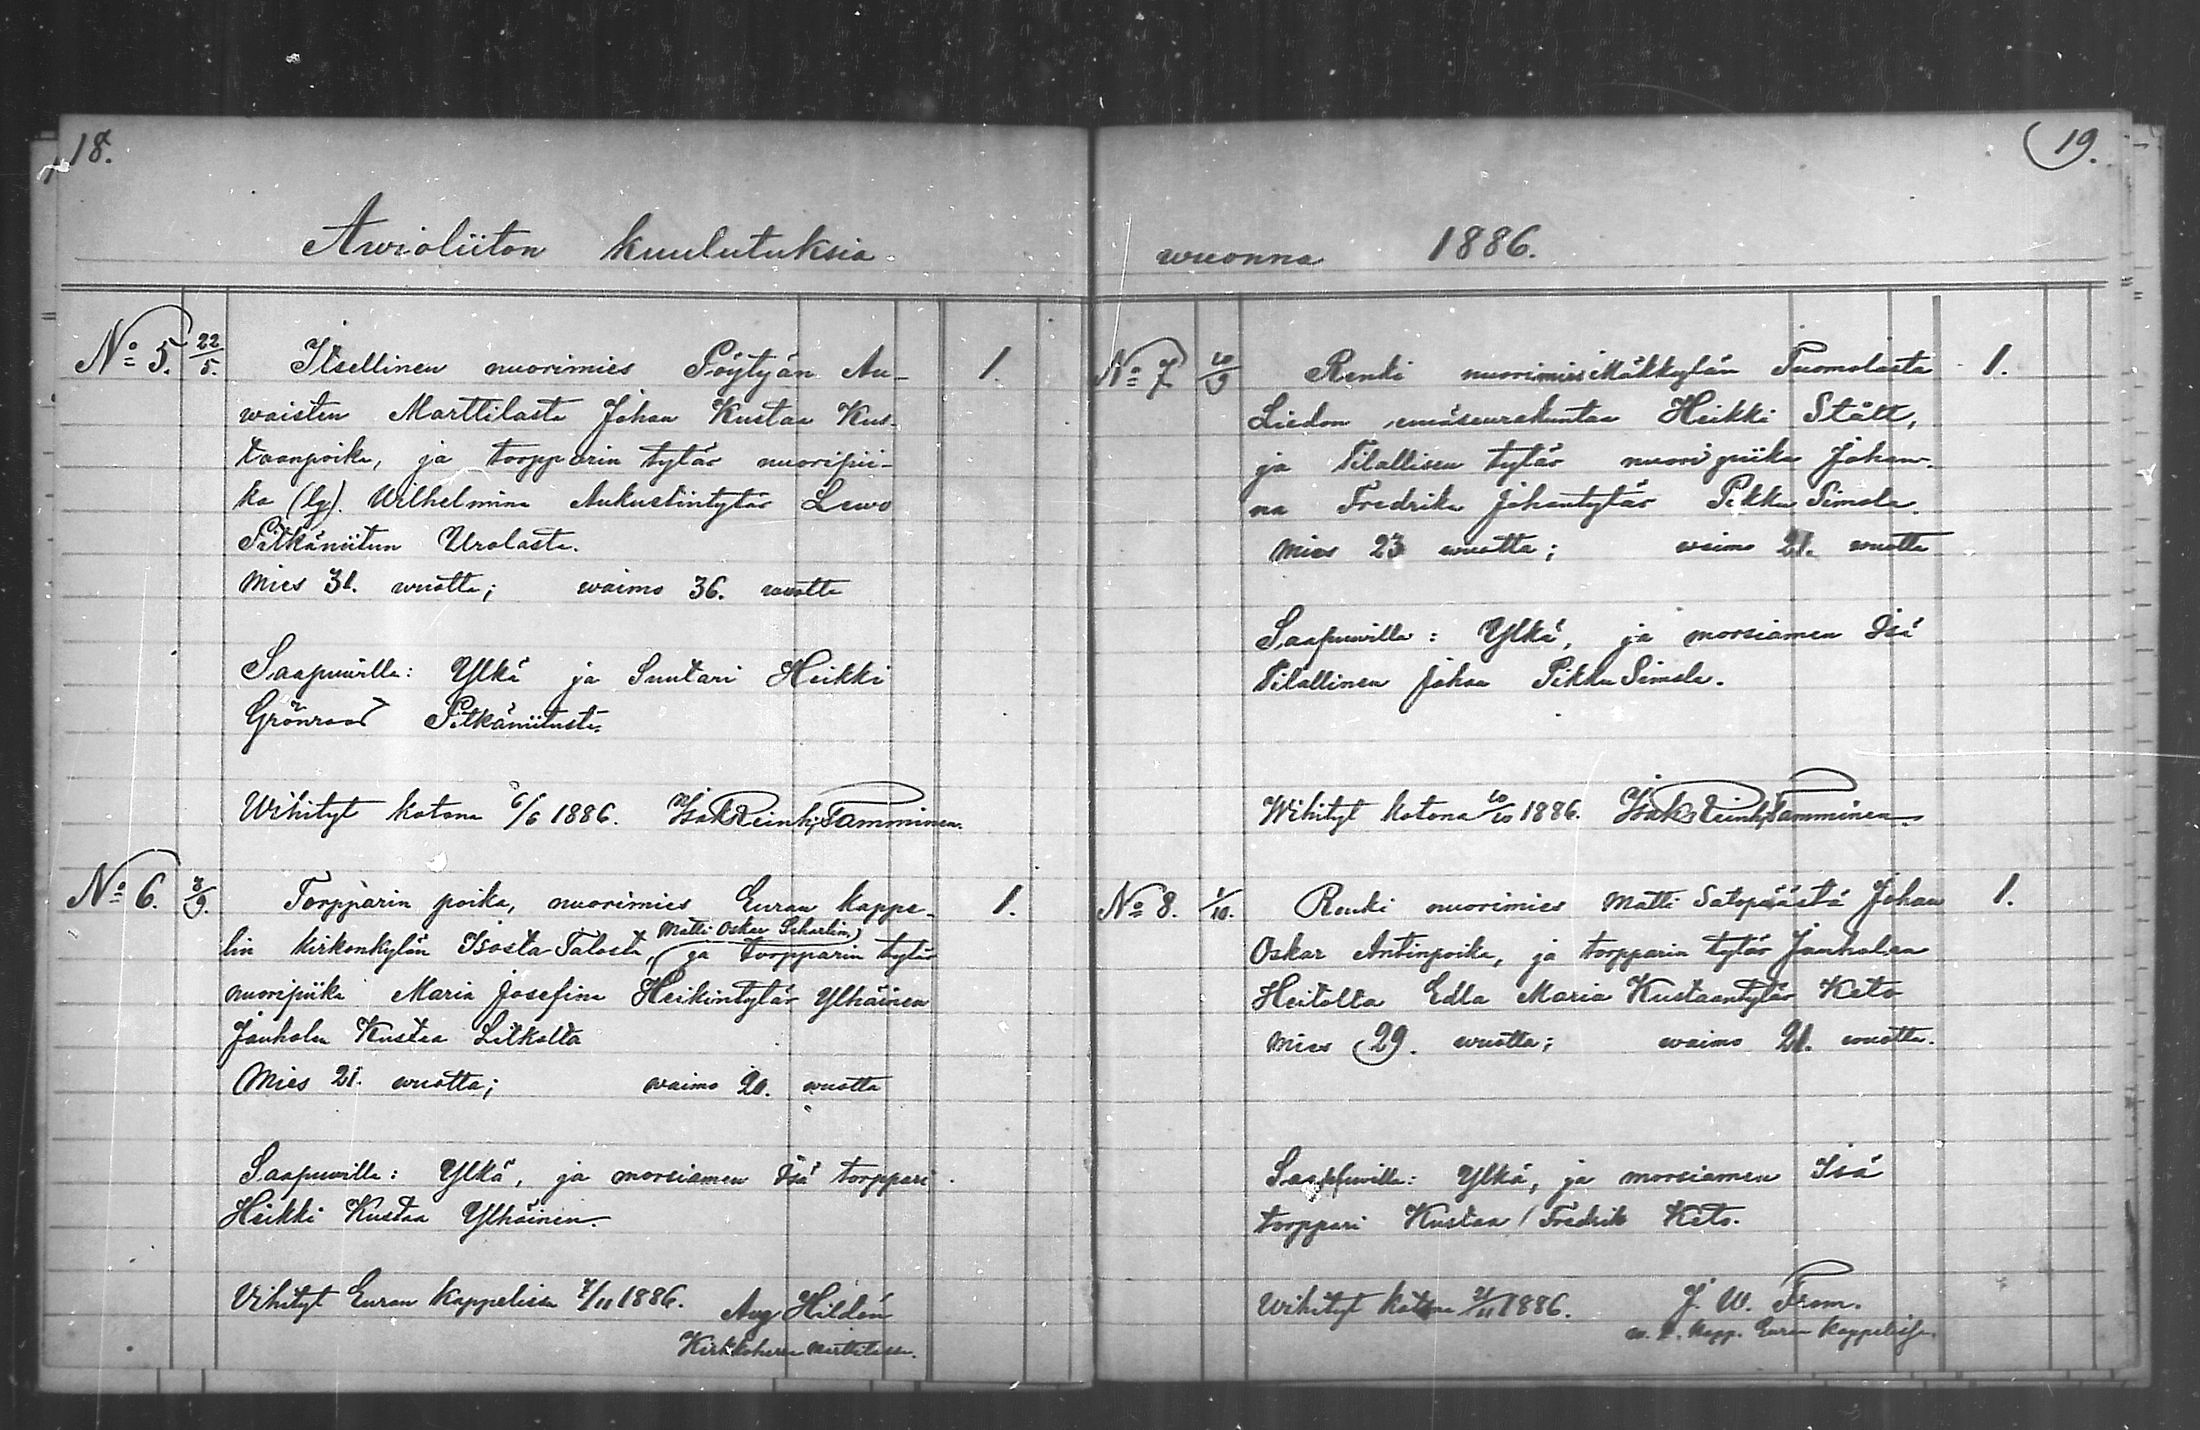 18.
Awioliiton kuulutuksia
No 5. 22/5. Itsellinen nuorimies Pöytyän Au- 1.
waisten Marttilasta Johan Kustaa Kus-
taanpoika, ja torpparin tytär nuoripii-
ka (lg). Wilhelmina Aukustiintytär Lewo
Pitkäniitun Urolasta.
Mies 31. wuotta; waimo 36. wuotta
Saapuwilla: Ylkä ja Suutari Heikki
Grönroos Pitkäniitusta.
Wihityt kotona 6/6 1886. Isak Reinh. Tamminen.
No 6. 3/9. Torpparin poika, nuorimies Euran kappe- 1.
lin kirkonkylän Isosta-Talosta, Matti Oskar Scharlin, ja torpparin tytär
nuoripiika Maria Josefina Heikintytär Ylhäinen
Janholan Kustaa Litkolta
Mies 21. wuotta; waimo 20. wuotta
Saapuwilla: Ylkä, ja morsiamen Isä torppari
Heikki Kustaa Ylhäinen.
Vihityt Euran Kappelissa 7/11 1886. Aug Hildén
Kirkkoherra
19.
wuonna 1886.
No 7 10/9 Renki nuorimies Mäkkylän Tuomolasta 1.
Liedon emäseurakuntaa Heikki Stålt,
ja Tilallisen tytär nuori piika Johan-
na Fredrika Johantytär Pikku Simola.
Mies 23 wuotta; waimo 21. wuotta
Saapuwilla: Ylkä, ja morsiamen Isä
Tilallinen Johan Pikku Simola.
Wihityt kotona 10/10 1886. Isak Reinh. Tamminen.
No 8. 1/10. Renki nuorimies Matti Satopäästä Johan 1.
Oskar Antinpoika, ja torpparin tytär Janholan
Heitolta Edla Maria Kustaantytär Keto
Mies 29. wuotta; waimo 21. wuotta.
Saapuwilla: Ylkä, ja morsiamen Isä
torppari Kustaa Fredrik Keto.
Wihityt kotona 21/11 1886. J. W. From.
Kapp. Euran kappelissa.